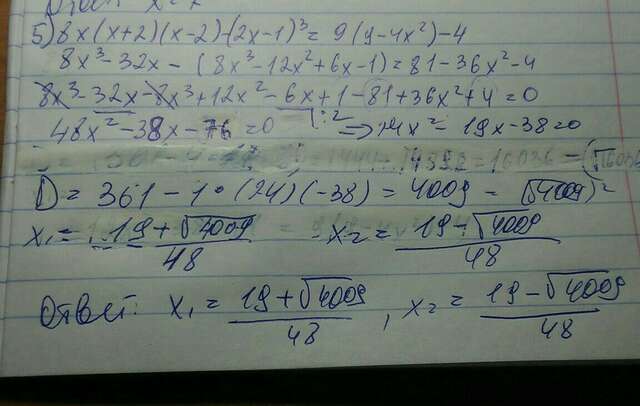 5) 8x(x+2)(x-2)-(2x-1)³ = 9(9-4x²)-4
8x³-32x - (8x³-12x²+6x-1) = 81-36x²-4
8x³-32x-8x³+12x²-6x+1-81+36x²+4=0
48x²-38x-76=0 |:2 ⇒ 24x²-19x-38=0
D = 361 - 1·(24)(-38) = 4009 = (√4009)²
x₁ = 19+√4009/48 x₂ = 19-√4009/48
Ответ: x₁ = 19+√4009/48, x₂ = 19-√4009/48